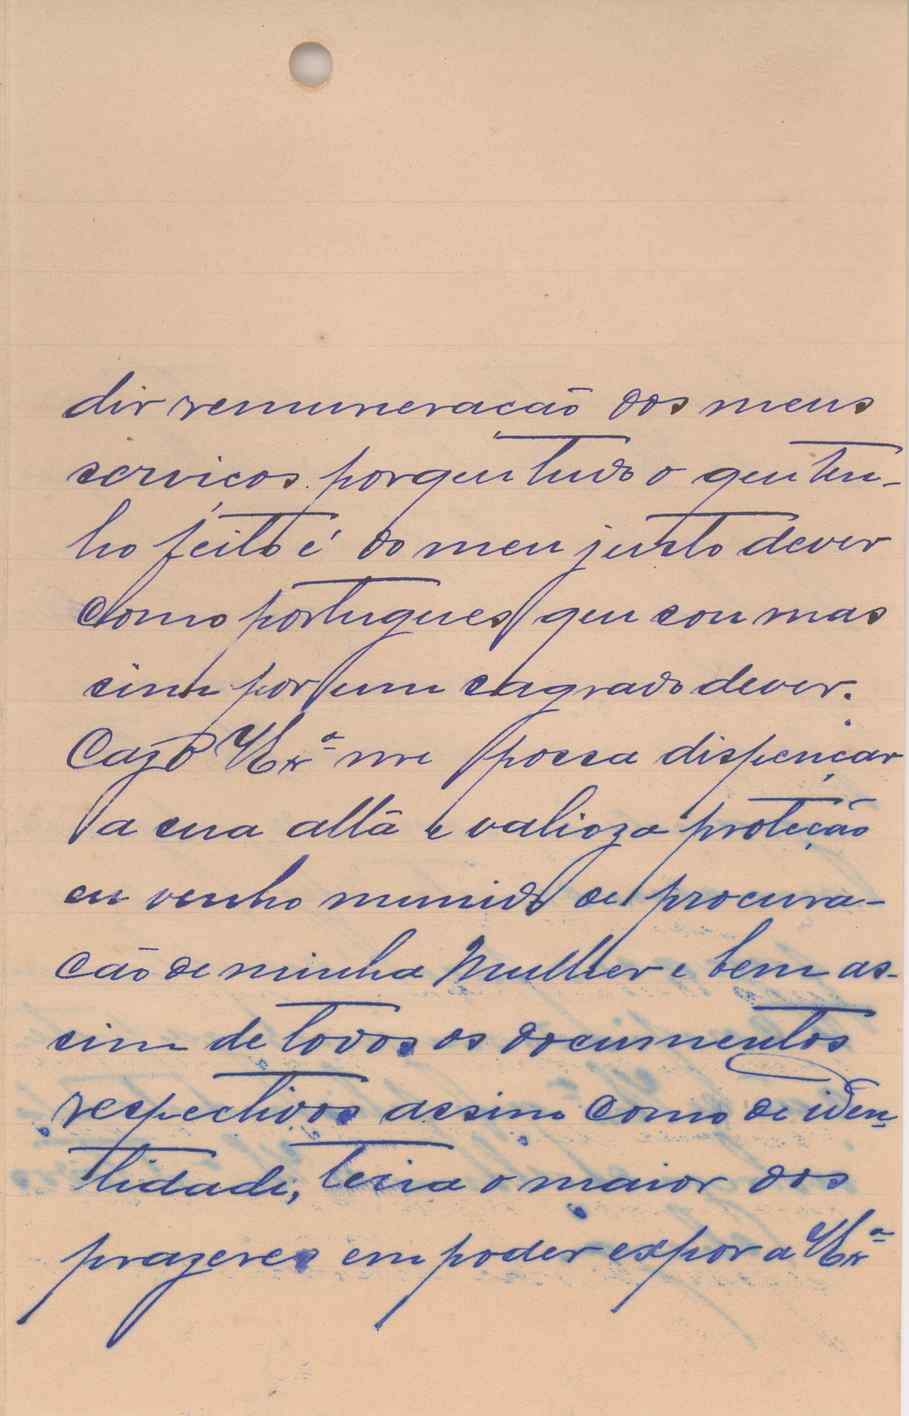 dir remuneração dos meus
serviços porque tudo o que ten-
ho feito é do meu justo dever
como portugues que sou mas
sim por um sagrado dever.
Cazo V Exª me possa dispençar
a sua altâ e valioza proteção
eu venho munido de procura-
ção de minha Mulher e bem as-
sim de todos os documentos
respectivos assim como de iden
tidade, teria o maior dos
prazeres em poder expor a V Exª